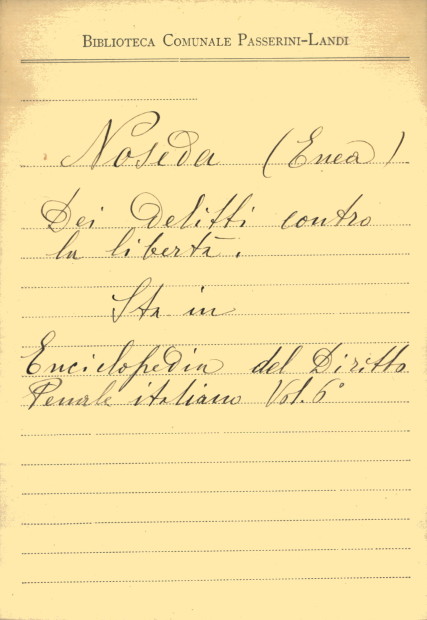 BIBLIOTECA COMUNALE PASSERINI-LANDI
Noseda (Enea)
Dei delitti contro
la libertà.
Sta in
Enciclopedia del Diritto
Penale italiano Vol. 6°